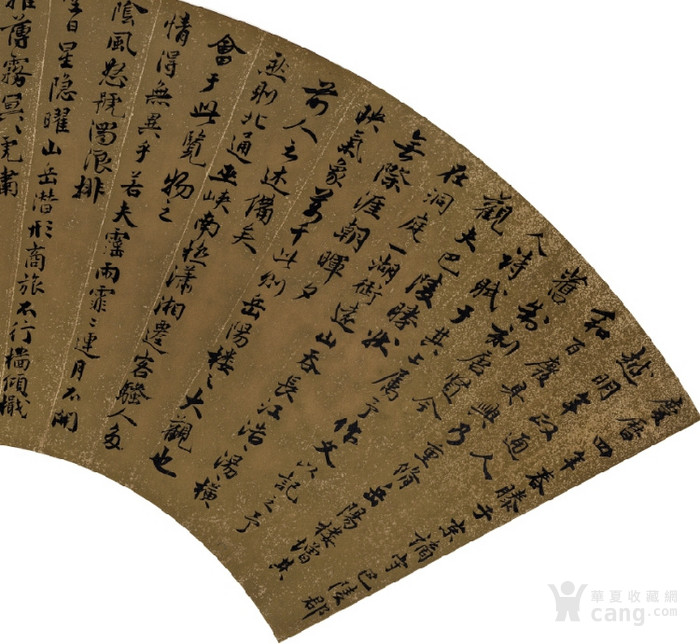 慶曆四年春滕子京謫守巴陵郡
越明年政通人
和百廢具興乃重脩岳陽楼增其
舊制刻唐賢今
人詩賦于其上属予作文以記之予
觀夫巴陵勝狀
在洞庭一湖銜遠山吞長江浩〻湯〻橫
無際涯朝暉夕
映氣象萬千此則岳陽楼之大觀也
前人之述備矣
然則北通巫峽南極瀟湘遷客騷人多
會于此覽物之
情得無異乎若夫霪雨霏〻連月不開
陰風怒號濁浪排
空日星隱曜山岳潛形商旅不行檣傾楫
摧薄霧冥〻虎嘯
華夏收藏網
cang.com